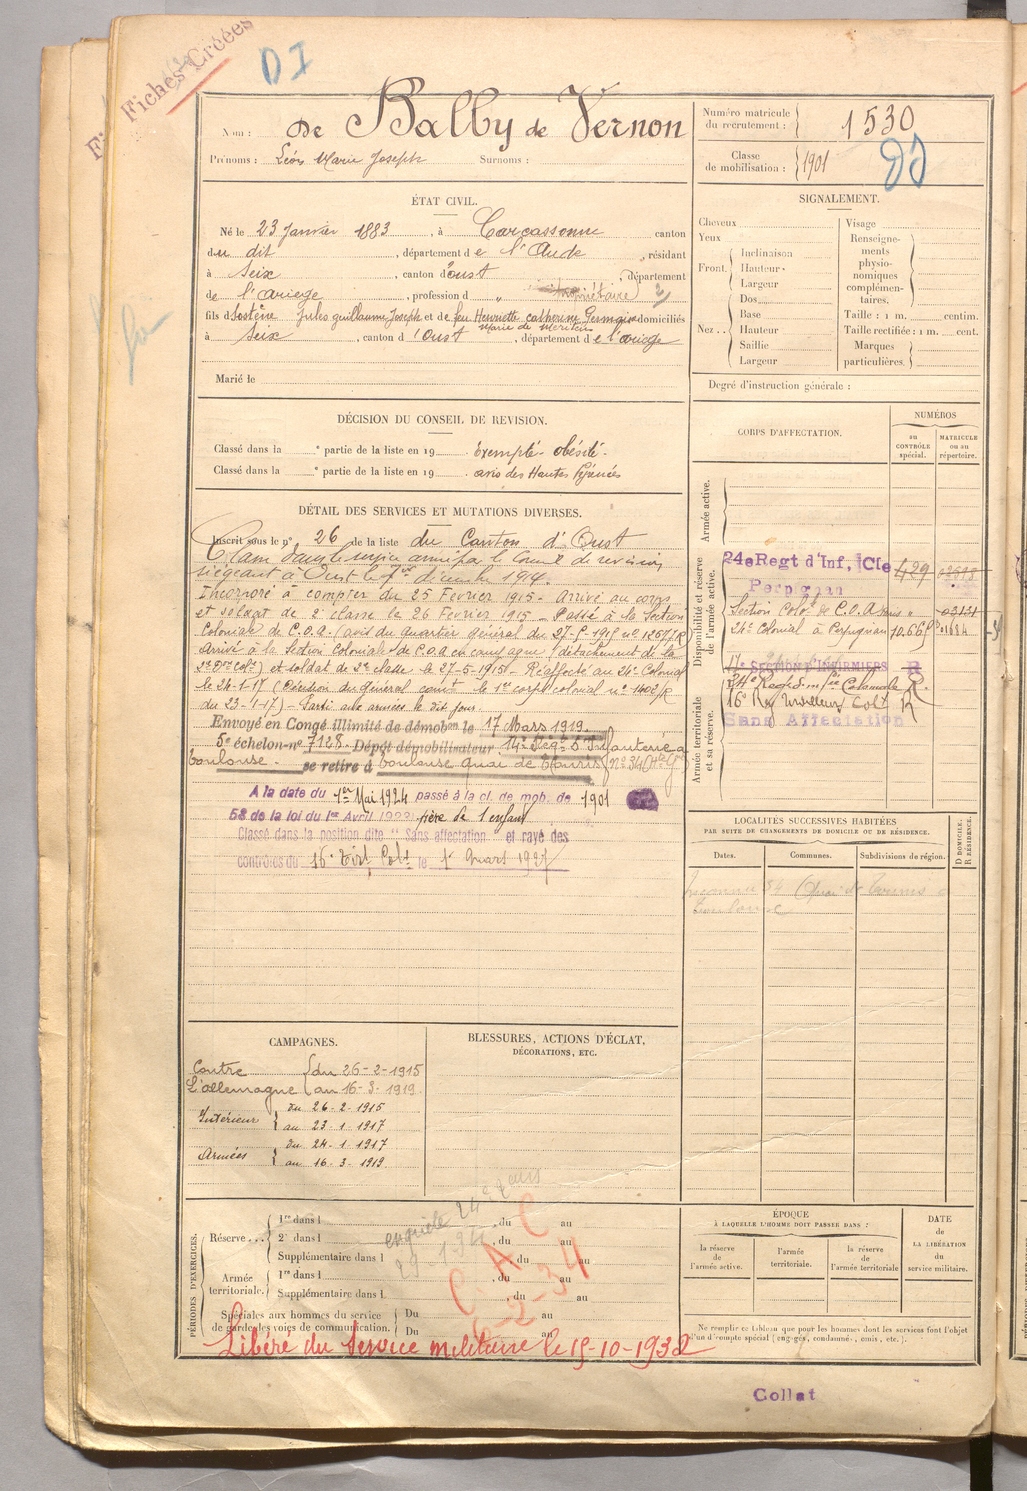 Fiches Créées
DI
Nom : De Balby de Vernon
Prénoms : Léon Marie Joseph Surnoms :
Numéro matricule du recrutement : 1530
Classe de mobilisation : 1901
ÉTAT CIVIL.
Né le 23 Janvier 1883, à Carcassonne canton
du dit, département de l'Aude, résidant
à Seix, canton d'Oust, département
de l'Ariège, profession d propriétaire
fils d Sostène Jules Guillaume Joseph et de feu Henriette Catherine Germaine domiciliés
Marie de
à Seix, canton d'Oust, département de l'Ariège
Marié le
SIGNALEMENT.
Cheveux
Yeux
Front. Inclinaison
Hauteur
Largeur
Nez Dos
Base
Hauteur
Saillie
Largeur
Visage
Renseignements physionomiques complémentaires.
Taille : 1 m. centim.
Taille rectifiée : 1 m. cent.
Marques particulières.
Degré d'instruction générale :
DÉCISION DU CONSEIL DE REVISION.
Classé dans la e partie de la liste en 19 Exempté - obésité -
Classé dans la e partie de la liste en 19 avis des Hautes Pyrénées
CORPS D'AFFECTATION.
NUMÉROS
au CONTRÔLE spécial.
MATRICULE ou au répertoire.
Armée active.
Disponibilité et réserve de l'armée active.
24e Regt d'Inf, Cie 429
Perpignan
Section Colole de C.O.A 03131
24e Colonial à Perpignan
17e SECTION D'INFIRMIERS R
24e Regt d'Infie Coloniale R.
16e Reg Tirailleurs Colx R
Sans Affectation
Armée territoriale et sa réserve.
DÉTAIL DES SERVICES ET MUTATIONS DIVERSES.
Inscrit sous le n° 26 de la liste du Canton d'Oust
Classé dans le service armé par le Conseil de révision
siégeant à Oust le 1er décembre 1914.
Incorporé à compter du 25 Février 1915 - Arrivé au corps
et soldat de 2e classe le 26 Février 1915 - Passé à la Section
Coloniale de C.O.A. (avis du Quartier Général du 27-5-1915 n° 1267/R
Arrivé à la Section Coloniale de C.O.A en campagne (détachement de la
2e Don Colle) et soldat de 2e classe le 27-5-1915 - Réaffecté au 24e Colonial
le 24-1-17 (Décision du général comt le 1er corps colonial n° 1402/R
du 23-1-17) - Parti aux armées le dit jour.
Envoyé en Congé illimité de démobon le 17 Mars 1919
5e échelon-n° 7128. Dépôt démobilisateur 14e Regt d'Infanterie à
Toulouse. se retire à Toulouse quai de Tounis n° 34 Hte Gne
A la date du 1er Mai 1924 passé à la cl. de mob. de 1901
58 de la loi du 1er Avril 1923 père de 1 enfant
Classé dans la position dite "Sans affectation" et rayé des
contrôles du 16e Tirs Colx le 1er Mars 1927
LOCALITÉS SUCCESSIVES HABITÉES
PAR SUITE DE CHANGEMENTS DE DOMICILE OU DE RÉSIDENCE.
Dates. Communes. Subdivisions de région. D DOMICILE. R RÉSIDENCE.
34 Quai de Tounis à
Toulouse
CAMPAGNES.
Contre du 26-2-1915
L'allemagne au 16-3-1919.
Intérieur du 26-2-1915
au 23-1-1917
Armées du 24-1-1917
au 16-3-1919
BLESSURES, ACTIONS D'ÉCLAT,
DÉCORATIONS, ETC.
PÉRIODES D'EXERCICES.
Réserve... 1re dans l , du au
2e dans l , du au
Supplémentaire dans l , du au
Armée territoriale. 1re dans l , du au
Supplémentaire dans l , du au
Spéciales aux hommes du service de garde des voies de communication. Du au
Du au
C A C
-2-34
Libéré du Service militaire le 15-10-1932
ÉPOQUE
À LAQUELLE L'HOMME DOIT PASSER DANS :
la réserve de l'armée active.
l'armée territoriale.
la réserve de l'armée territoriale
DATE DE LA LIBÉRATION du service militaire.
Ne remplir ce tableau que pour les hommes dont les services font l'objet
d'un décompte spécial (engagés, condamnés, omis, etc.).
Collat